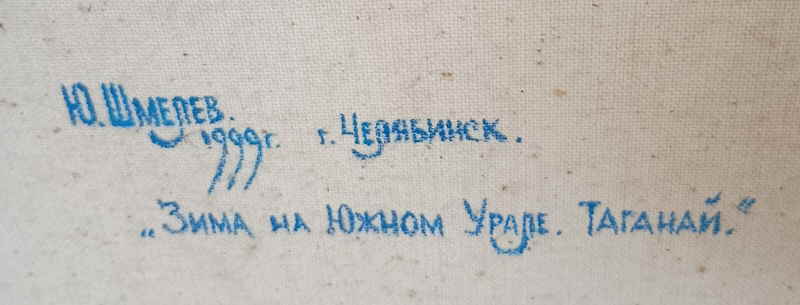 Ю. Шмелев.
1999г. г. Челябинск.
„Зима на Южном Урале. Таганай.“